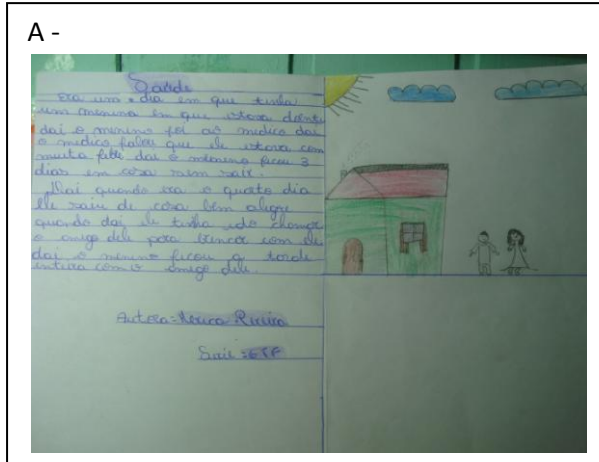 A -
Saúde
Era um dia em que tinha
um menino em que estava doente
daí o menino foi ao medico daí
o medico falou que ele estava com
muita febre daí o menino ficou 3
dias em casa sem sair.
Daí quando era o quarto dia
ele saiu de casa bem alegre
quando daí ele tinha ido chamar
o amigo dele para brincar com ele
daí o menino ficou a tarde
inteira com o amigo dele.
Autora=
Série =